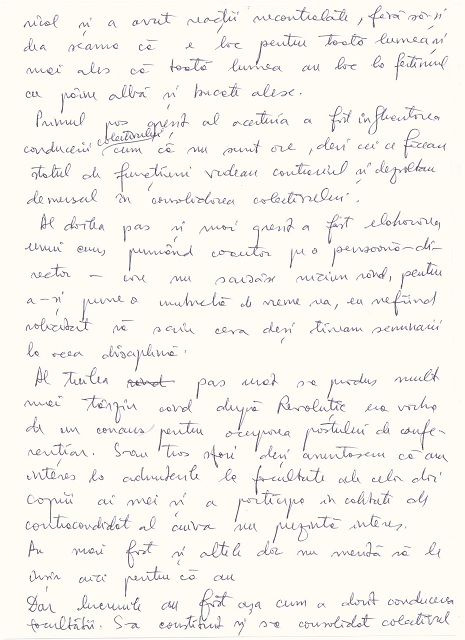 nical și a avut reacții necontrolate, fără să-și
dea seama că e loc pentru toată lumea și
mai ales că toată lumea au loc la festinul
cu pâine albă și bucate alese.
Primul pas greșit al acestuia a fost influențarea
conducerii colectivului cum că nu sunt ore, deși cei ce făceau
statul de funcțiuni vedeau contrariul și
demersul în consolidarea colectivului.
Al doilea pas și mai greșit a fost elaborarea
unui curs punând coautor pe o persoană - di-
rector - care nu scrisese niciun rând, pentru
a-și pune o de vreme rea, eu nefiind
solicitat să scriu ceva deși țineam seminarii
la acea disciplină.
Al treilea pas s-a produs mult
mai târziu când după Revoluție era vorba
de un concurs pentru ocuparea postului de confe-
rențiar. S-au tras sfori deși anunțasem că am
interes la admiterile la facultate ale celor doi
copii ai mei și a participa în calitate de
contracandidat al cuiva nu prezintă interes.
Au mai fost și altele dar nu merită să le
înșir aici pentru că au
Dar lucrurile au fost așa cum a dorit conducerea
facultății. S-a constituit și s-a consolidat colectivul